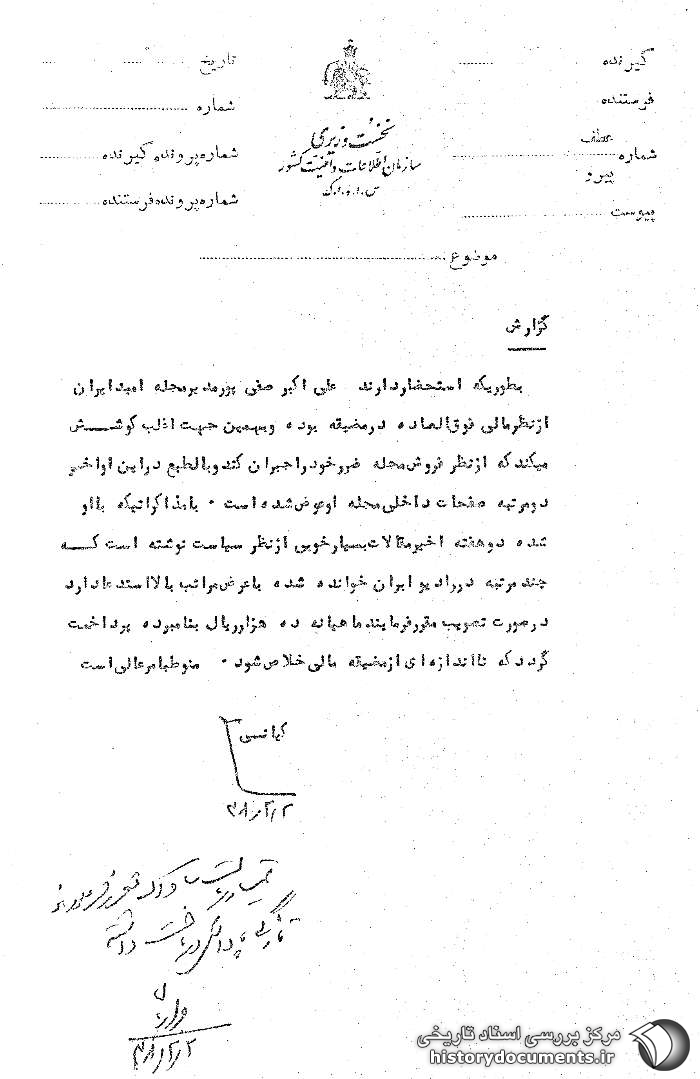 گیرنده
فرستنده
عطف
شماره
پیرو
پیوست
نخست وزیری
سازمان اطلاعات و امنیت کشور
س.ا.و.ا.ک
تاریخ
شماره
شماره پرونده گیرنده
شماره پرونده فرستنده
موضوع
گزارش
بطوریکه استحضار دارند علی اکبر صفی پور مدیر مجله امید ایران
از نظر مالی فوق العاده در مضیقه بوده و بهمین جهت اغلب کوشش
میکند که از نظر فروش مجله ضرر خود را جبران کند و بالطبع در این اواخر
دو مرتبه صفحات داخلی مجله او عوض شده است . با مذاکراتیکه با او
شده دو هفته اخیر مقالات بسیار خوبی از نظر سیاست نوشته است که
چند مرتبه در رادیو ایران خوانده شده با عرض مراتب بالا استدعا دارد
در صورت تصویب مقرر فرمایند ماهیانه ده هزار ریال بنامبرده پرداخت
گردد که تا اندازه ای از مضیقه مالی خلاص شود . منوط بامر عالی است
کیانی
تیمسار ریاست ساواک مقرر فرمودند
مرکز بررسی اسناد تاریخی
historydocuments.ir